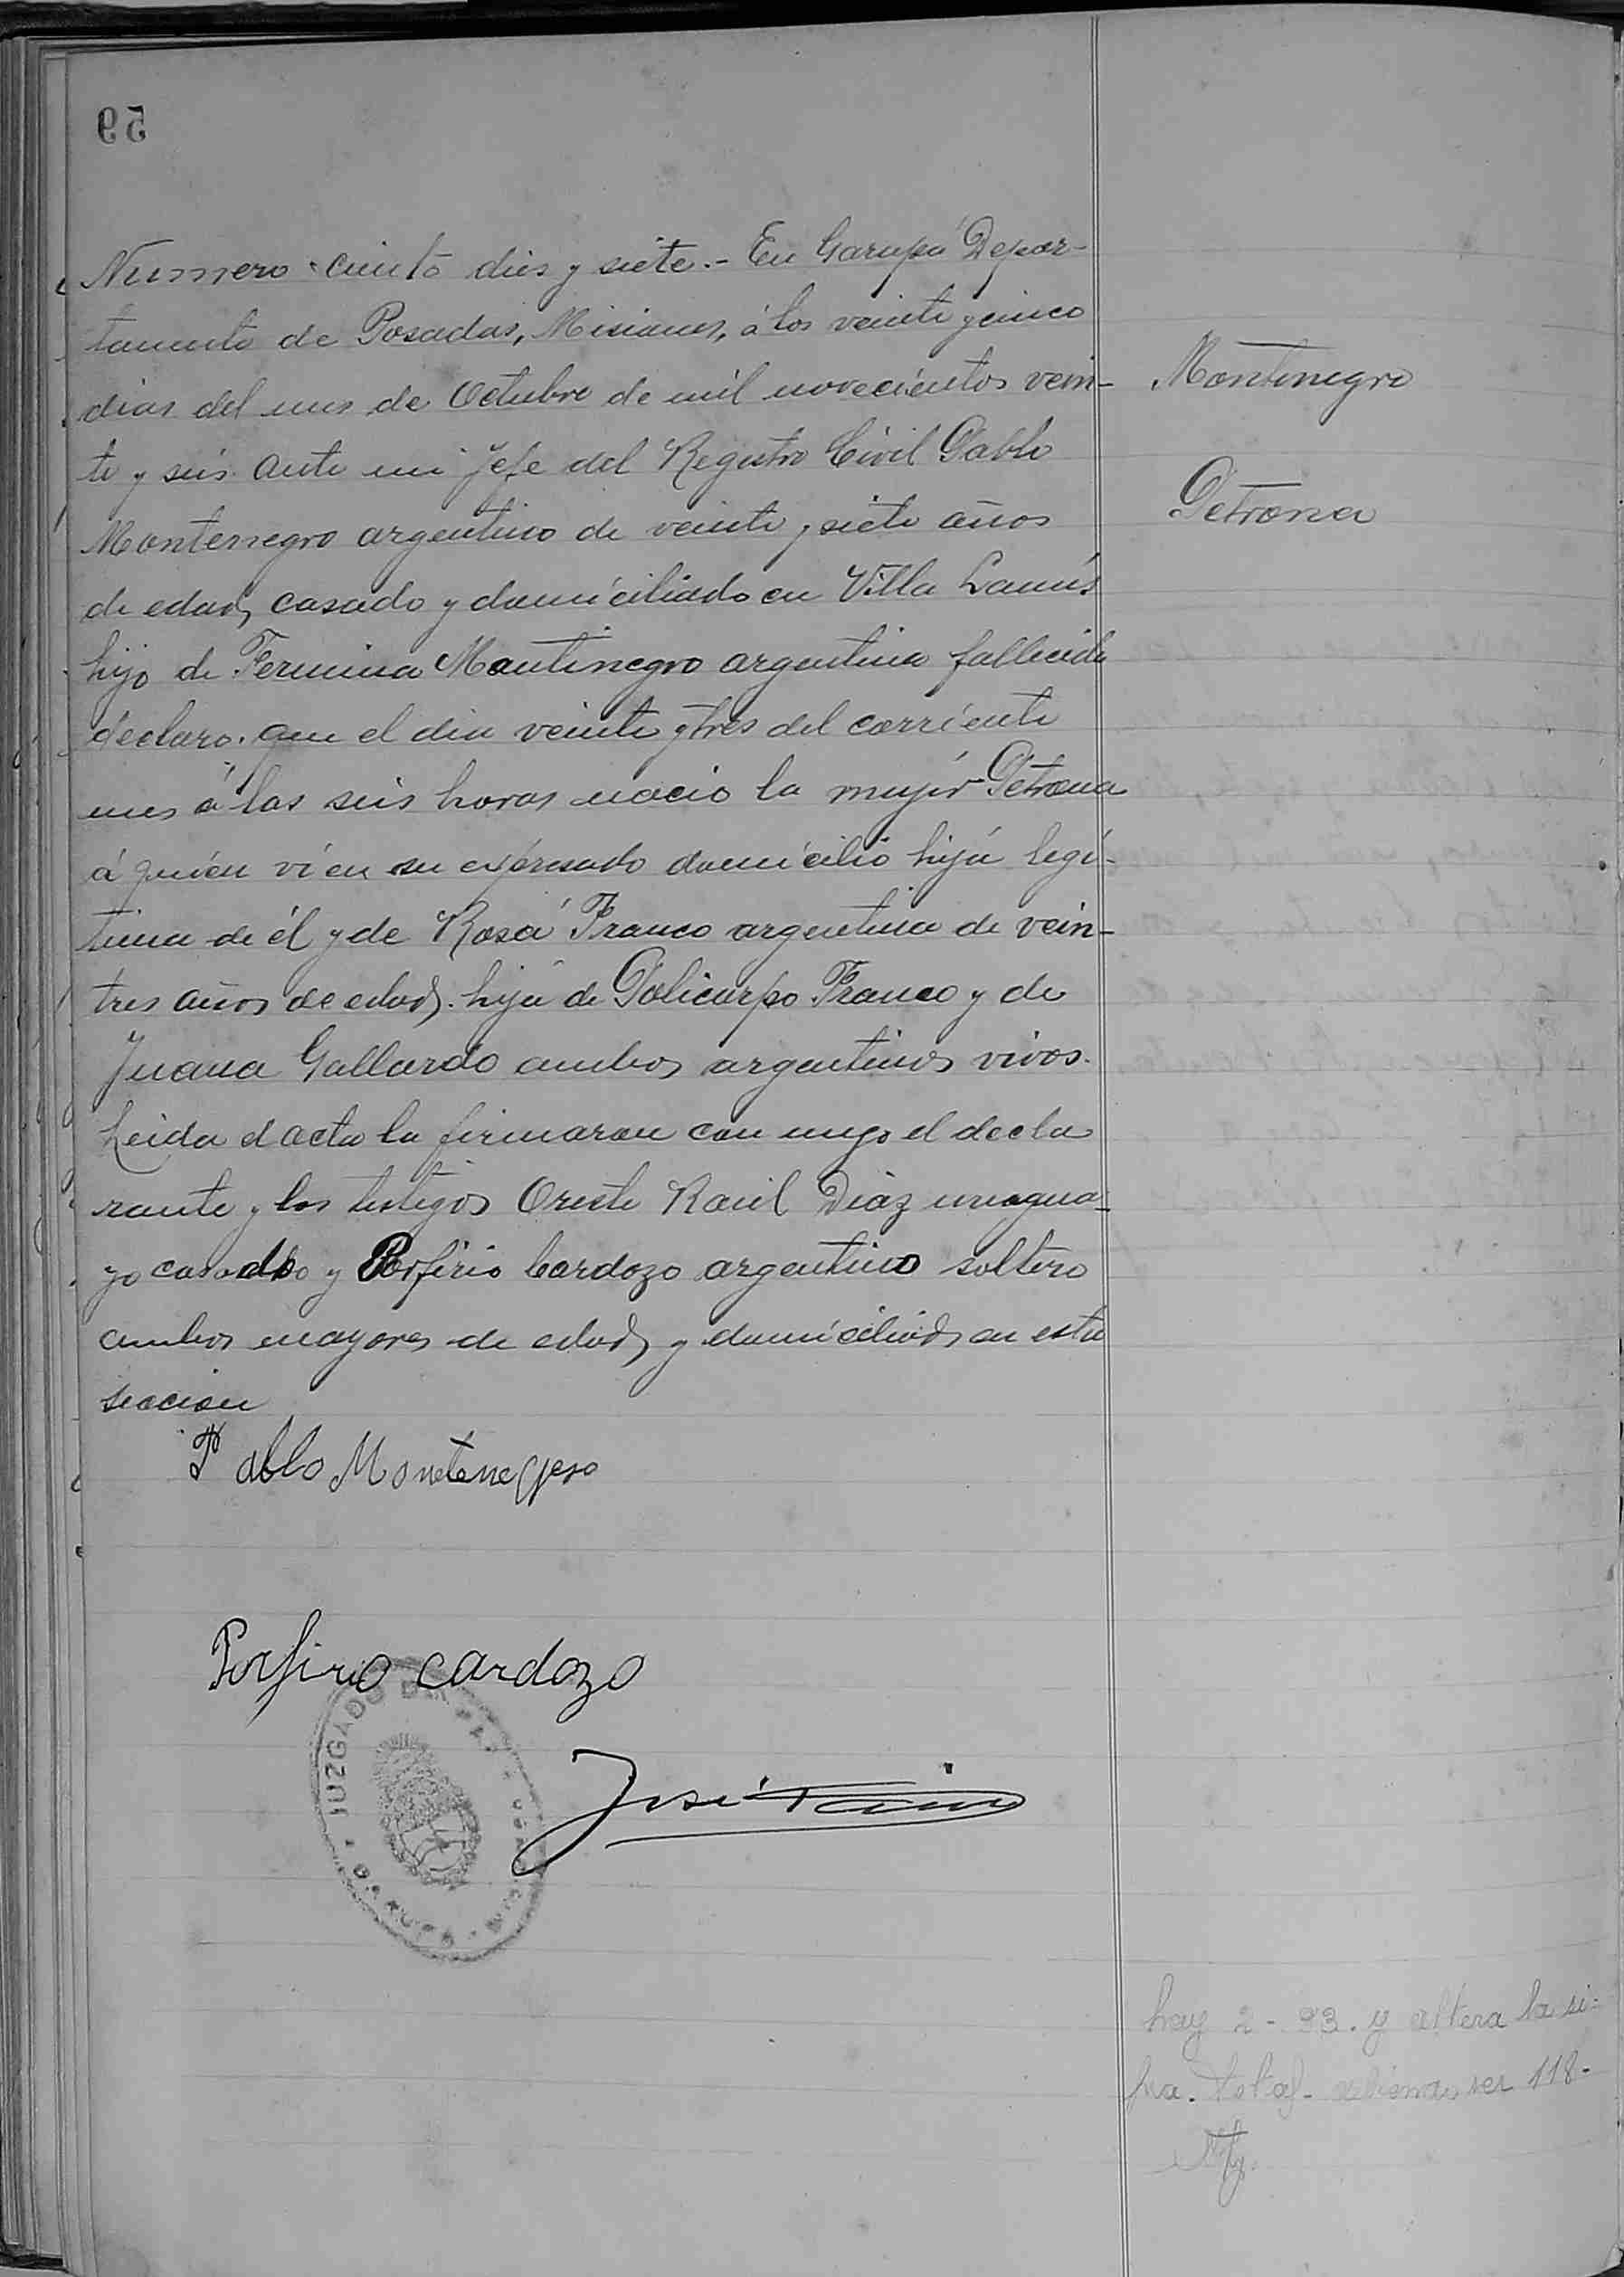 59
Numero ciento dies y siete.- En Garupá Depar-
tamento de Posadas, Misiones, á los veinte y cinco
dias del mes de Octubre de mil novecientos vein-
te y seis ante mi Jefe del Registro Civil Pablo
Montenegro argentino de veinte y siete años
de edad, casado y domiciliado en Villa Lanús
hijo de Fermina Montenegro argentina fallecida
declaro. que el dia veinte y tres del corriente
mes á las seis horas nació la mujer Petrona
á quien ví en su expresado domicilio hija legí-
tima de él y de Rosa Franco argentina de vein-
tres años de edad. hija de Policarpo Franco y de
Juana Gallardo ambos argentinos vivos.
Leida el acta la firmaron con migo el decla
rante y los testigos Oreste Raúl Diaz uruagua-
yo casado y Porfirio Cardozo argentino soltero
ambos mayores de edad y domiciliados en esta
seccion
Pablo Montenegro
Porfirio Cardozo
José
JUZGADO DE PAZ
GARUPA
Montenegro
Petrona
hay 2 - 93. y altera la si-
fra. total- debiendo ser 118-